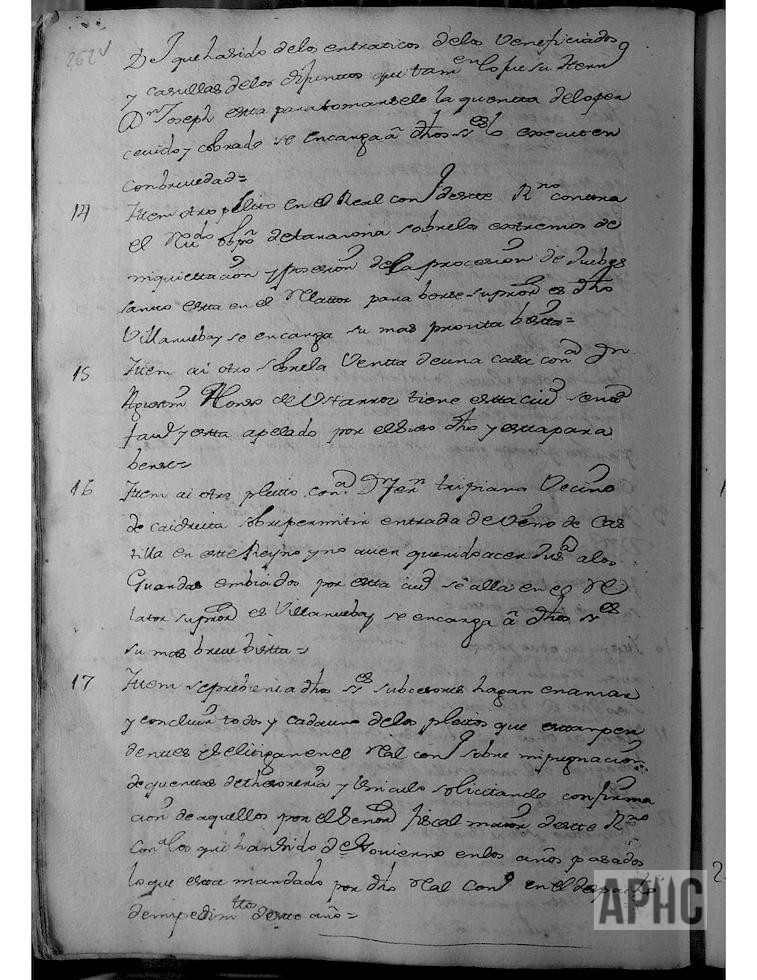 262v
Del que ha sido de los entraticos de los Veneficiados
y casullas de los difunttos que tamen lo fue su Herno
Dn Joseph esta para tomarsele la quentta de lo per
cevido y cobrado se encarga a dhos sres lo executen
con brevedad=
14 Ittem otro pleito en el Real Conso de este Rno contra
el Rdo obpo de tarazona sobre los extremos de
inquiettacion y posesion de la procesion de Juebes
santto estta en el Relattor para berse su procor es dho
Villanueba y se encarga su mas prontta bistta=
15 Ittem ai otro sobre la Ventta de una casa con
Agustin Alonso de Ustarroz tiene estta ciud sena
favl y estta apelado por el dho y estta para
berse=
16 Ittem ai otro pleitto con Dn Fern tripiana Vecino
de caidruita sobre permitir entrada de Vino de Cas
tilla en estte Reyno y no aver querido acer a los
Guardas embiados por estta ciud se alla en el Re
lator su procor es Villanueba y se encarga a dhos sres
su mas breve bistta=
17 Ittem se prebiene a dhos sres subcesores hagan enamar
y concluir todos y cada uno de los pleitos que esttan pen
denttes y se litigan en el Real Conso sobre impugnacion
de quenttas de thesoreria y Vinculo solicitando confirma
cion de aquellos por el Señor fiscal maior de estte Rno
con los que han sido de Govierno en los años pasados
lo que estta mandado por dho Real Conso en el despacho
de impedimttos de estte año=
APHC